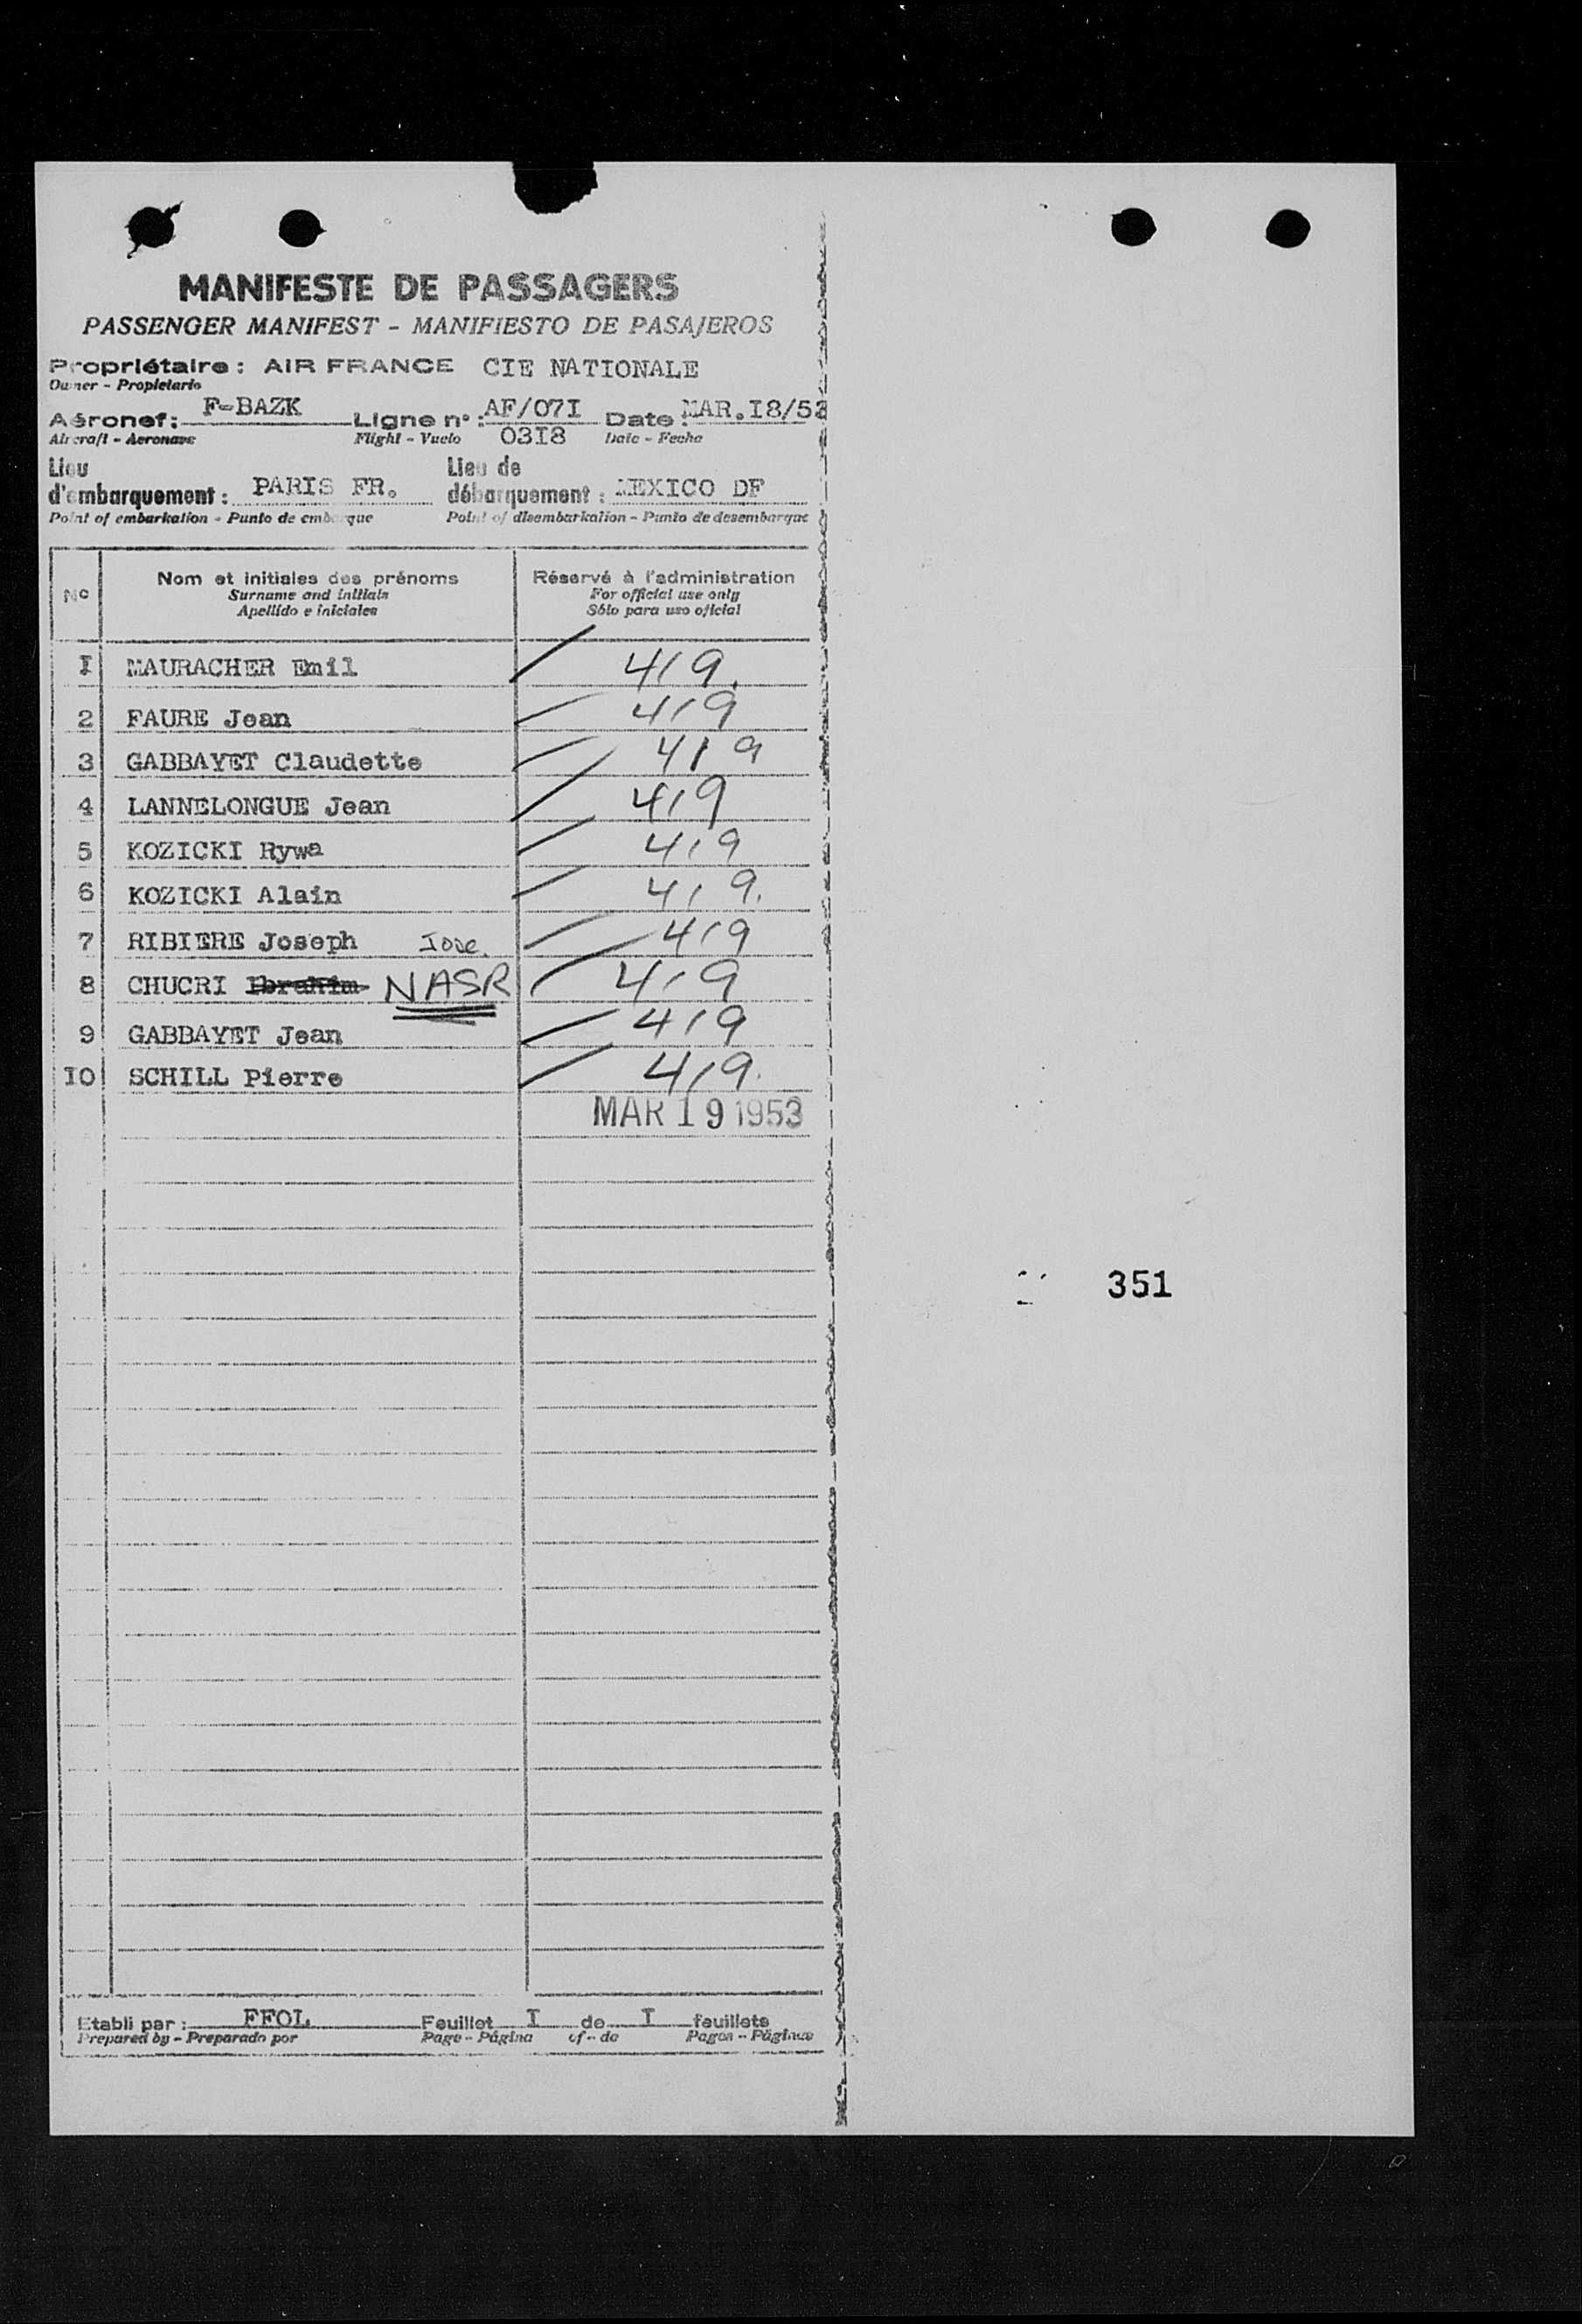 MANIFESTE DE PASSAGERS
PASSENGER MANIFEST - MANIFIESTO DE PASAJEROS
Propriétaire : AIR FRANCE CIE NATIONALE
Owner - Propietario
Aéronef : F-BAZK Ligne n° : AF/07I Date : MAR.I8/53
Aircraft - Aeronave Flight - Vuelo 03I8 Date - Fecha
Lieu Lieu de
d'embarquement : PARIS FR. débarquement : MEXICO DF
Point of embarkation - Punto de embarque Point of disembarkation - Punto de desembarque
N° Nom et initiales des prénoms Réservé à l'administration
Surname and initials For official use only
Apellido e iniciales Sólo para uso oficial
I MAURACHER Emil 419.
2 FAURE Jean 419
3 GABBAYET Claudette 419
4 LANNELONGUE Jean 419
5 KOZICKI Rywa 419
6 KOZICKI Alain 419.
7 RIBIERE Joseph Jose. 419
8 CHUCRI Ibrahim NASR 419
9 GABBAYET Jean 419
IO SCHILL Pierre 419.
MAR 19 1953
351
Etabli par : FFOL Feuillet I de I feuillets
Prepared by - Preparado por Page - Página of - de Pages - Páginas